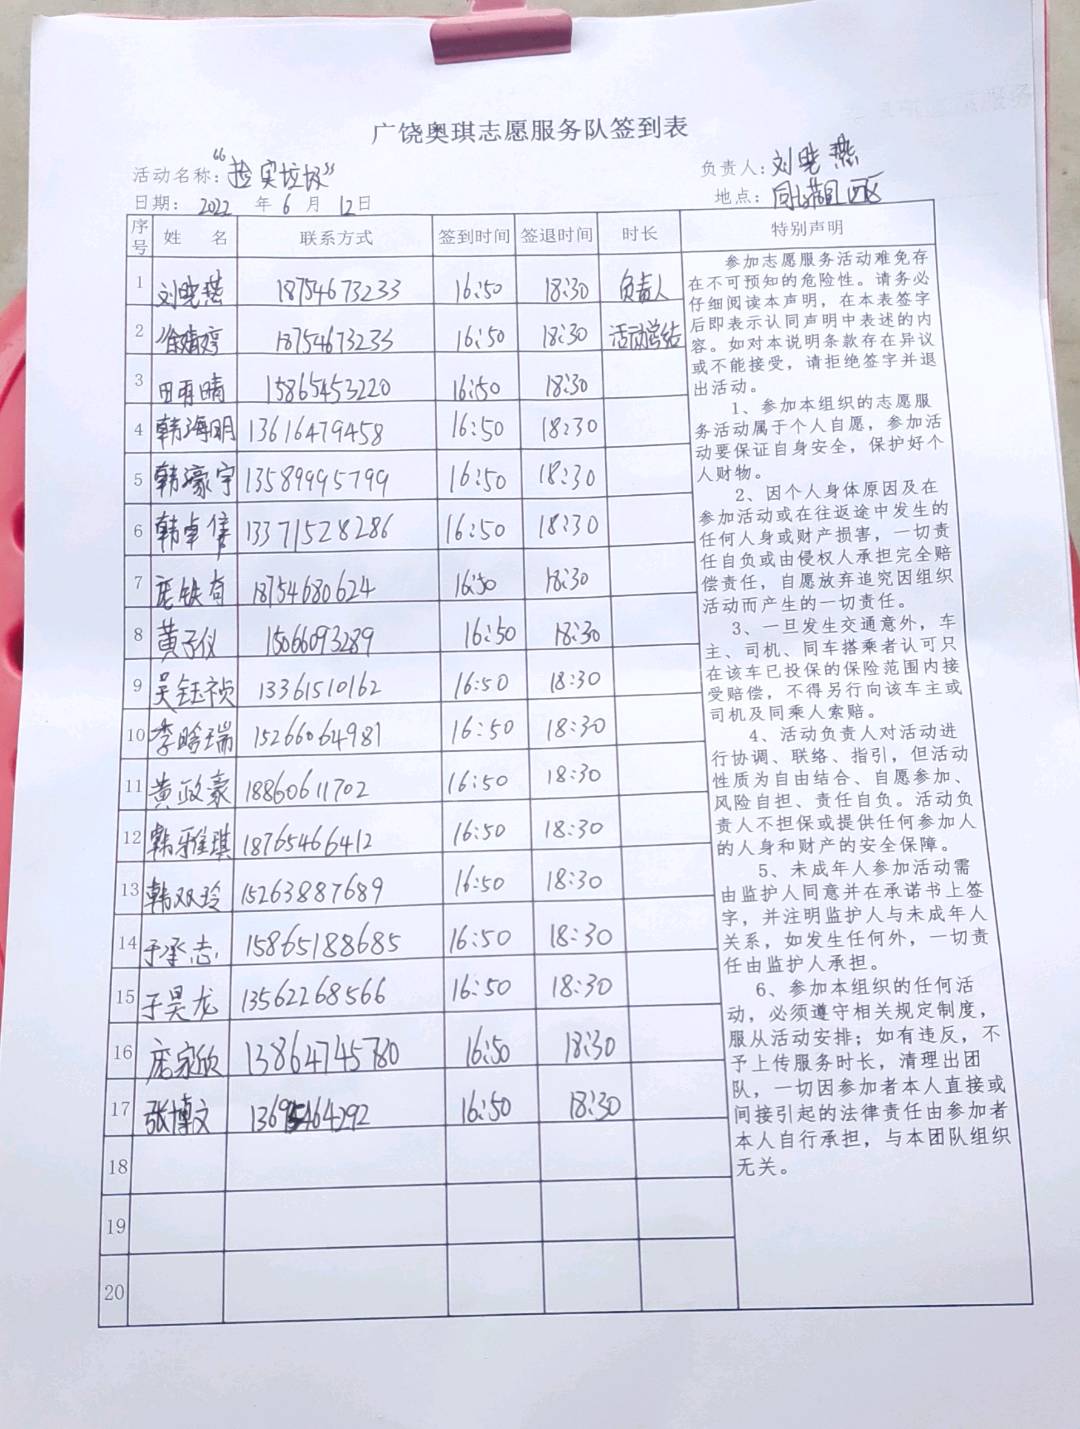 广饶奥琪志愿服务队签到表
活动名称：“捡实垃圾” 负责人：刘晓燕
日期：2022 年 6 月 12日 地点：
序号 姓名 联系方式 签到时间 签退时间 时长 特别声明
1 刘晓燕 18754673233 16:50 18:30 负责人
2 徐婧婷 18754673233 16:50 18:30 活动总结
3 田雨晴 15865453220 16:50 18:30
4 韩海明 13616479458 16:50 18:30
5 韩濠宇 13589995799 16:50 18:30
6 韩卓信 13371528286 16:50 18:30
7 庞铁有 18754680624 16:50 18:30
8 黄子仪 15066093289 16:50 18:30
9 吴钰祯 13361510162 16:50 18:30
10 李晗瑞 15266064981 16:50 18:30
11 黄政豪 18860611702 16:50 18:30
12 韩雅琪 18765466412 16:50 18:30
13 韩双玲 15263887689 16:50 18:30
14 于承志 15865188685 16:50 18:30
15 于昊龙 13562268566 16:50 18:30
16 庞家欣 13864745780 16:50 18:30
17 张博文 13695464292 16:50 18:30
18
19
20
参加志愿服务活动难免存
在不可预知的危险性。请务必
仔细阅读本声明，在本表签字
后即表示认同声明中表述的内
容。如对本说明条款存在异议
或不能接受，请拒绝签字并退
出活动。
1、参加本组织的志愿服
务活动属于个人自愿，参加活
动要保证自身安全，保护好个
人财物。
2、因个人身体原因及在
参加活动或在往返途中发生的
任何人身或财产损害，一切责
任自负或由侵权人承担完全赔
偿责任，自愿放弃追究因组织
活动而产生的一切责任。
3、一旦发生交通意外，车
主、司机、同车搭乘者认可只
在该车已投保的保险范围内接
受赔偿，不得另行向该车主或
司机及同乘人索赔。
4、活动负责人对活动进
行协调、联络、指引，但活动
性质为自由结合、自愿参加、
风险自担、责任自负。活动负
责人不担保或提供任何参加人
的人身和财产的安全保障。
5、未成年人参加活动需
由监护人同意并在承诺书上签
字，并注明监护人与未成年人
关系，如发生任何外，一切责
任由监护人承担。
6、参加本组织的任何活
动，必须遵守相关规定制度，
服从活动安排；如有违反，不
予上传服务时长，清理出团
队，一切因参加者本人直接或
间接引起的法律责任由参加者
本人自行承担，与本团队组织
无关。